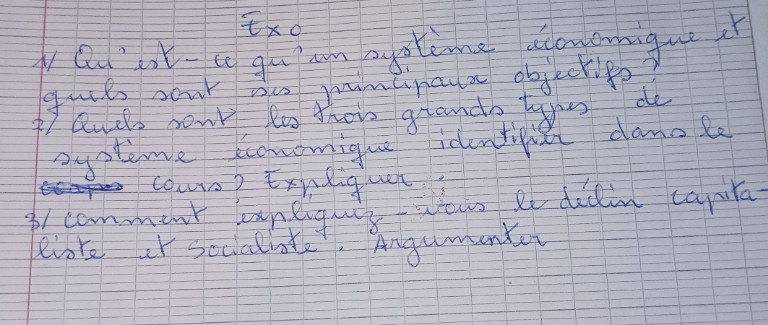 Exo
1/ Qu'est-ce qu'un système économique et
quels sont ses principaux objectifs ?
2/ Quels sont les trois grands types de
système économique identifier dans le
cours ? Expliquer.
3/ comment expliquez-vous le déclin capita-
liste et socialiste. Argumenter